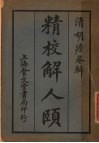 清明陸容輯
精校解人頤
上海會文堂書局印行